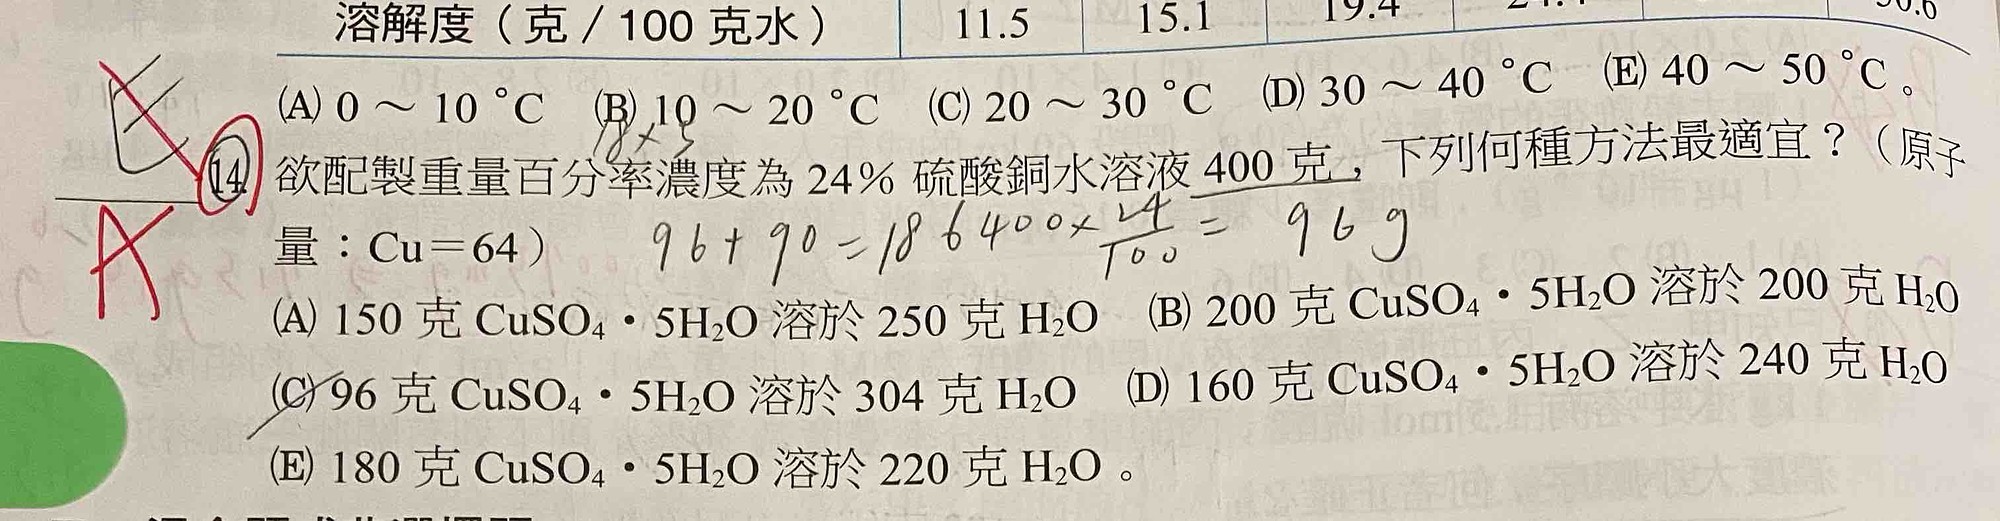 溶解度（克/100 克水） 11.5 15.1 19.4
(A) 0 ～ 10 °C (B) 10 ～ 20 °C (C) 20 ～ 30 °C (D) 30 ～ 40 °C (E) 40 ～ 50 °C。
18×5
E
14. 欲配製重量百分率濃度為 24% 硫酸銅水溶液 400 克，下列何種方法最適宜？（原子
A
量：Cu＝64）
96+90=186 400×24/100= 96g
(A) 150 克 CuSO₄・5H₂O 溶於 250 克 H₂O (B) 200 克 CuSO₄・5H₂O 溶於 200 克 H₂O
(C) 96 克 CuSO₄・5H₂O 溶於 304 克 H₂O (D) 160 克 CuSO₄・5H₂O 溶於 240 克 H₂O
(E) 180 克 CuSO₄・5H₂O 溶於 220 克 H₂O。